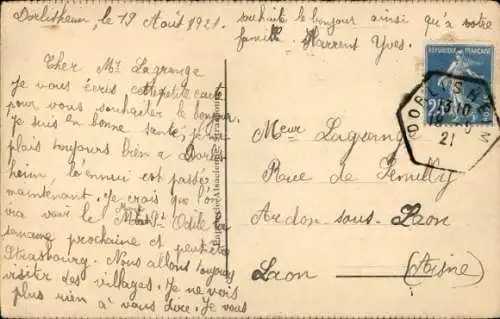 Dorlisheim, le 19 Août 1921.
Cher Mr Lagrange
je vous écris cette petite carte
pour vous souhaiter le bonjour.
Je suis en bonne santé, je me
plais toujours bien à Dorlis-
heim, l'ennui est passé
maintenant. Je crois que l'on
ira voir le Mt St Odile la
semaine prochaine et peut-être
Strasbourg. Nous allons toujours
visiter des villages. Je ne vois
plus rien à vous dire. Je vous
souhaite le bonjour ainsi qu'à votre
famille. Harrent Yves.
REPUBLIQUE FRANÇAISE
DORLISHEIM
13-10
21
Meur Lagrange
Rue de Semilly
Ardon-sous-Laon
Laon (Aisne)